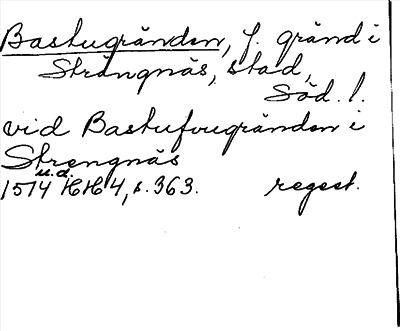 Bastugränden, f. gränd i
Strängnäs, stad,
Söd. l.
vid Bastufougränden i
Strengnäs
u.d.
1514 HH 4, s. 363. regest.